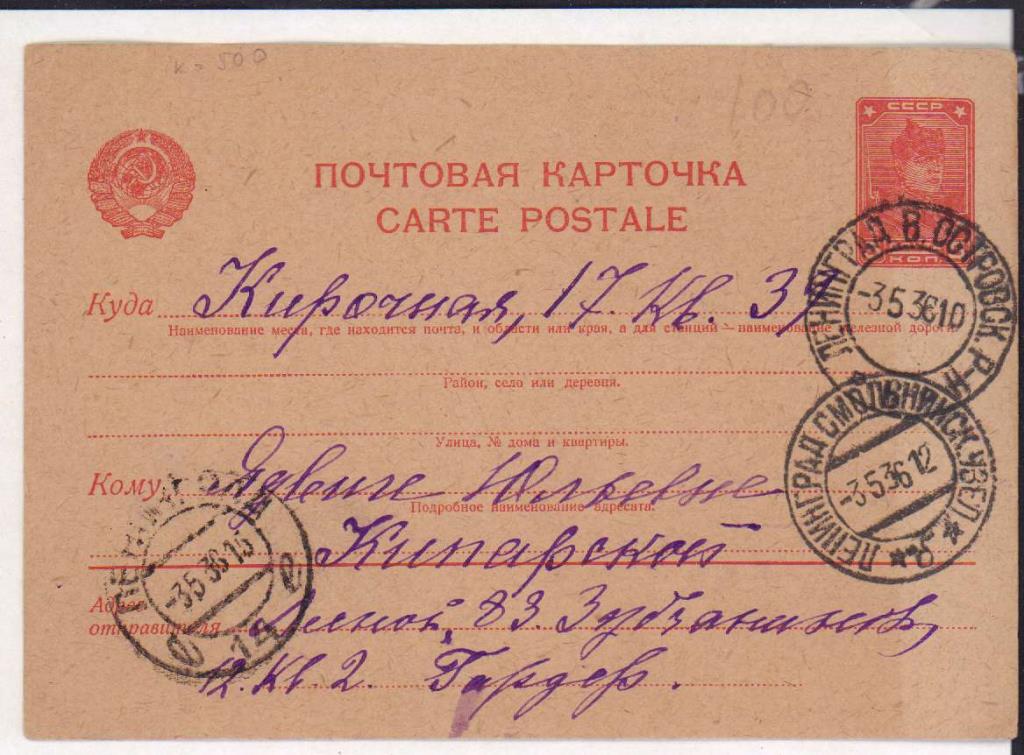 к=500
100
СССР
ПОЧТОВАЯ КАРТОЧКА
CARTE POSTALE
КОП.
ЛЕНИНГРАД В. ОСТРОВСК. Р-Н
-3 5 36 10
Куда Кирочная, 17. Кв. 37
Наименование места, где находится почта, и области или края, а для станций — наименование железной дороги.
Район, село или деревня.
Улица, № дома и квартиры.
ЛЕНИНГРАД СМОЛЬНИНСК.
-3 5 36 12
Кому Ядвиге Юльевне
Подробное наименование адресата.
Кипарской
ЛЕНИНГРАД
-3 5 36 15
Адрес отправителя
Лесной, 83.
12. Кв. 2. Гардер.